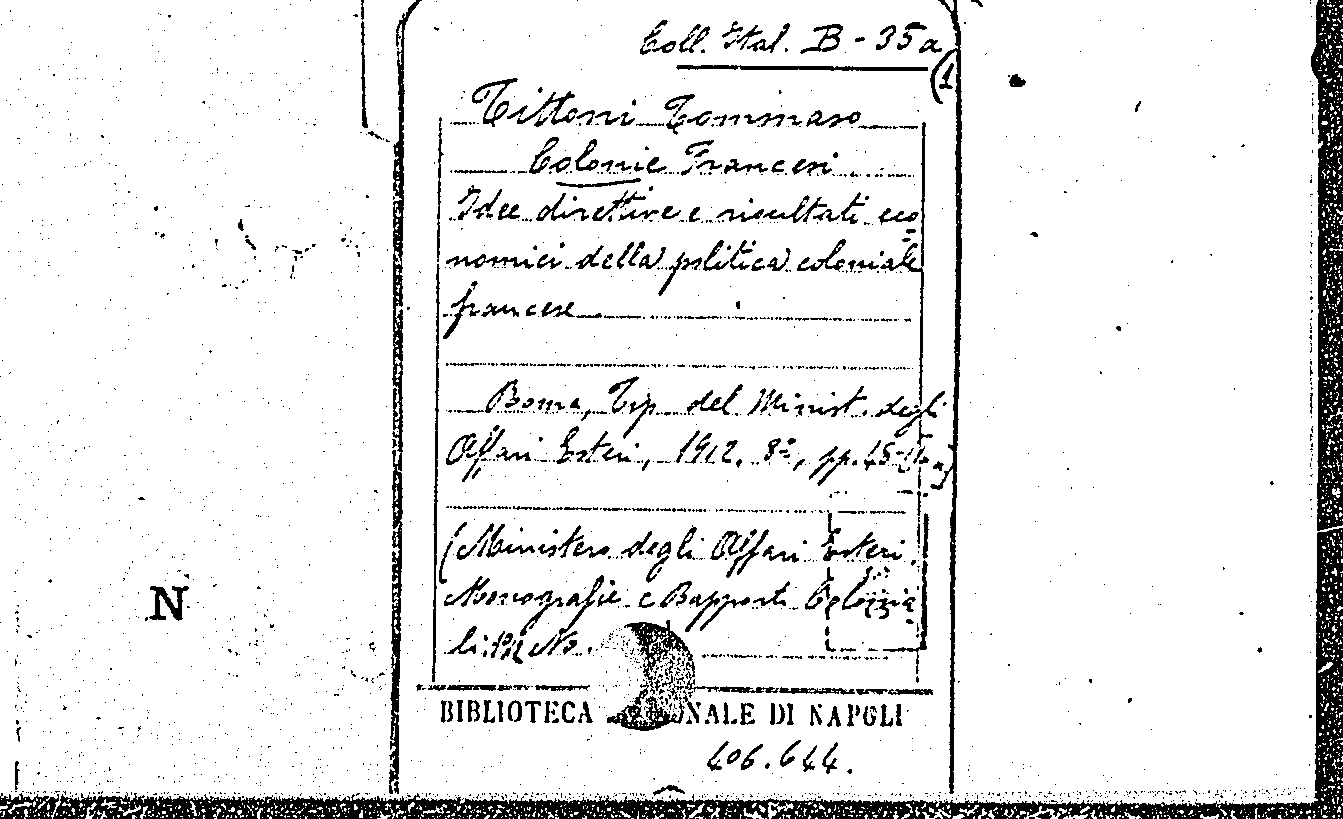 Coll. Ital. B - 35 a
(1
Tittoni Tommaso
Colonie Francesi
Idee direttive e risultati eco=
nomici della politica coloniale
francese
Roma, Tip. del Minist. degli
Affari Esteri, 1912. 8º, pp. 45
(Ministero degli Affari Esteri.
Monografie e Rapporti Colonia
li: 1912 No.
N
BIBLIOTECA NALE DI NAPOLI
406.644.